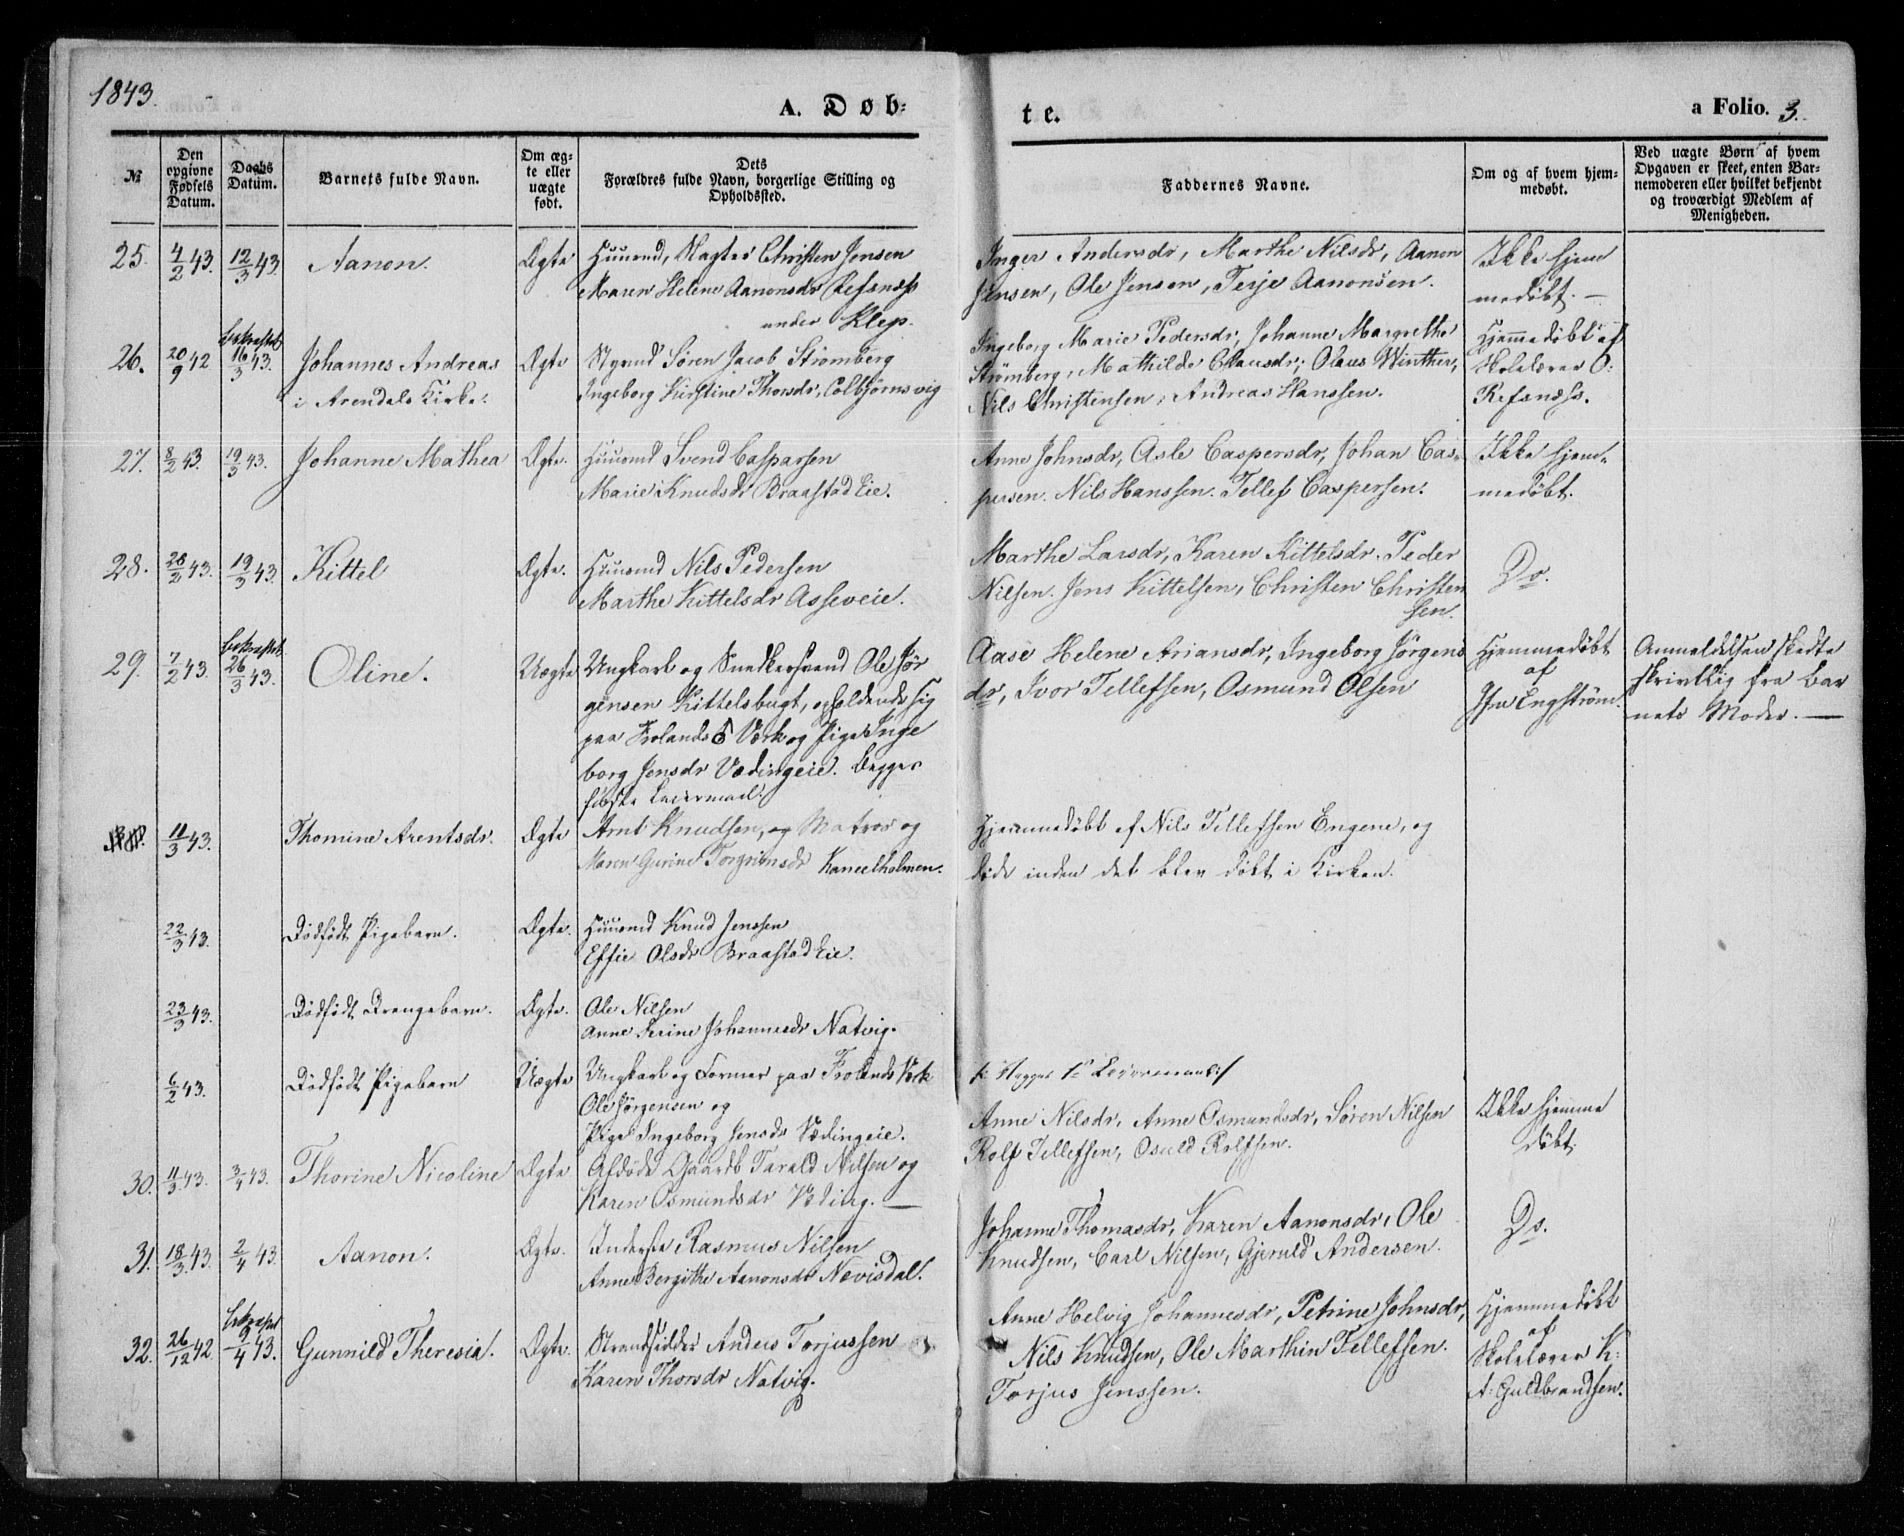 1843.
A. Døb-
te.
a Folio. 3.
№
Den opgivne Fødsels Datum.
Daabs Datum.
Barnets fulde Navn.
Om ægte eller uægte født.
Dets Forældres fulde Navn, borgerlige Stilling og Opholdssted.
Faddernes Navne.
Om og af hvem hjemmedøbt.
Ved uægte Børn af hvem Opgaven er skeet, enten Barnemoderen eller hvilket bekjendt og troværdigt Medlem af Menigheden.
25. 4/2 43. 12/3 43. Aanon. Ægte
Huusmd, Christen Jensen
Maren Helene Aanonsdr Refsnæss
under Klep.
Inger Andersdr, Marthe Nilsdr, Aanon
Jensen, Ole Jensen, Terje Aanonsen.
Ikke hjem
medøbt. —
26. 20/9 42 bekræftet 16/3 43. Johannes Andreas
i Arendals Kirke.
Ægte
Styrmd Søren Jacob Strømberg
Ingeborg Kirstine Thorsdr, Colbjørnsvig
Ingeborg Marie Pedersdr, Johanne Margrethe
Strømberg, Mathilde Clausdr, Olaus Winther,
Nils Christensen, Andreas Hanssen.
Hjemmedøbt af
Skolelærer O:
Refsnæss.
27. 8/2 43. 19/3 43. Johanne Mathea Ægte.
Huusmd Svend Casparsen
Marie Knudsdr Braastad Eie.
Anne Johnsdr, Asle Caspersdr, Johan Cas-
persen. Nils Hanssen. Tellef Caspersen.
Ikke hjem-
medøbt.
28. 26/2 43. 19/3 43. Kittel Ægte.
Huusmd Nils Pedersen
Marthe Kittelsdr Asseveie.
Marthe Larsdr, Karen Kittelsdr. Peder
Nilsen. Jens Kittelsen, Christen Christen
sen.
Do.
29. 7/2 43. bekræftet 26/3 43. Oline. Uægte
Ungkarl og Snedkersvend Ole Jør
gensen Kittelsbugt, opholdende sig
paa Frolands Værk og Pige Inge
borg Jensdr Vædingeie. Begges
første Leiermaal.
Aase Helene Ariansdr, Ingeborg Jørgens
dr, Ivor Tellefsen, Osmund Olsen
Hjemmedøbt
af
Engström.
Anmeldelsen skedte
skriftlig fra Bar
nets Moder. —
11/3 43. Thomine Arentsdr. Ægte
Arnt Knudsen, og Matros og
Maren Gurine Torgrimsdr Kaneelholmen.
Hjemmedøbt af Nils Tellefsen Engene, og
døde inden det blev døbt i Kirken.
22/3 43. Dødfødt Pigebarn. Ægte.
Huusmd Knud Jenssen
Effie Olsdr Braastad Eie.
23/3 43. Dødfødt Drengebarn. Ægte.
Ole Nilsen
Anne Serine Johannesdr Natvig.
6/2 43. Dødfødt Pigebarn Uægte
Ungkarl og Former paa Frolands Værk
Ole Jørgensen og
Pige Ingeborg Jensdr Vædingeie.
Begges 1ste Leiermaal
30. 11/3 43. 3/4 43. Thorine Nicoline Ægte.
Afdøde Gaardb Tarald Nilsen og
Karen Osmundsdr Væding. —
Anne Nilsdr, Anne Osmundsdr, Søren Nilsen
Rolf Tellefsen, Osuld Rolfsen.
Ikke hjemme
døbt.
31. 18/3 43. 2/4 43. Aanon. Ægte.
Inderste Rasmus Nilsen
Anne Bergithe Aanonsdr Nevisdal.
Johanne Thomasdr, Karen Aanonsdr, Ole
Knudsen, Carl Nilsen, Gjeruld Andersen.
Do.
32. 26/12 42. bekræftet 9/4 43. Gunnild Theresia. Ægte.
Strandsidder Anders Torjussen
Karen Thorsdr Natvig.
Anne Helvig Johannesdr, Petrine Johnsdr,
Nils Knudsen, Ole Marthin Tellefsen.
Torjus Jenssen.
Hjemmedøbt
af
Skolelærer K:
A: Guldbrandsen.